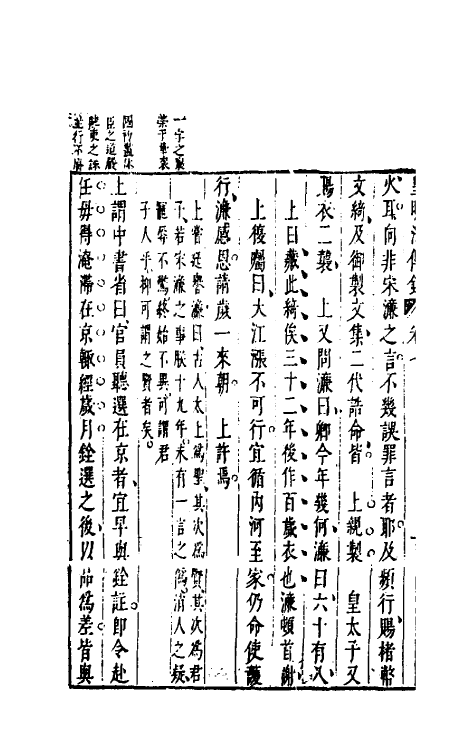 一字之褒
榮于華袞
臣之道嚴
並行不廢
火耳向非宋濂之言不幾誤罪言者耶及頻行賜楮幣
文綺及御製文集二代誥命皆 上親製 皇太子又
賜衣二襲 上又問濂曰卿今年幾何濂曰六十有八
上曰藏此綺俟三十二年後作百歲衣也濂頓首謝
上復囑曰大江漲不可行宜循內河至家仍命使護
行濂感恩請歲一來朝 上許焉
上嘗廷譽濂曰古人太上為聖其次為賢其次為君
子若宋濂之事朕十九年未有一言之僞誚人之疑
寵辱不驚終始不異可謂君
子人乎抑可謂之賢者矣
上謂中書省曰官員聽選在京者宜早與銓註即令赴
任毋得淹滯在京輒經歲月銓選之後以品為差皆與